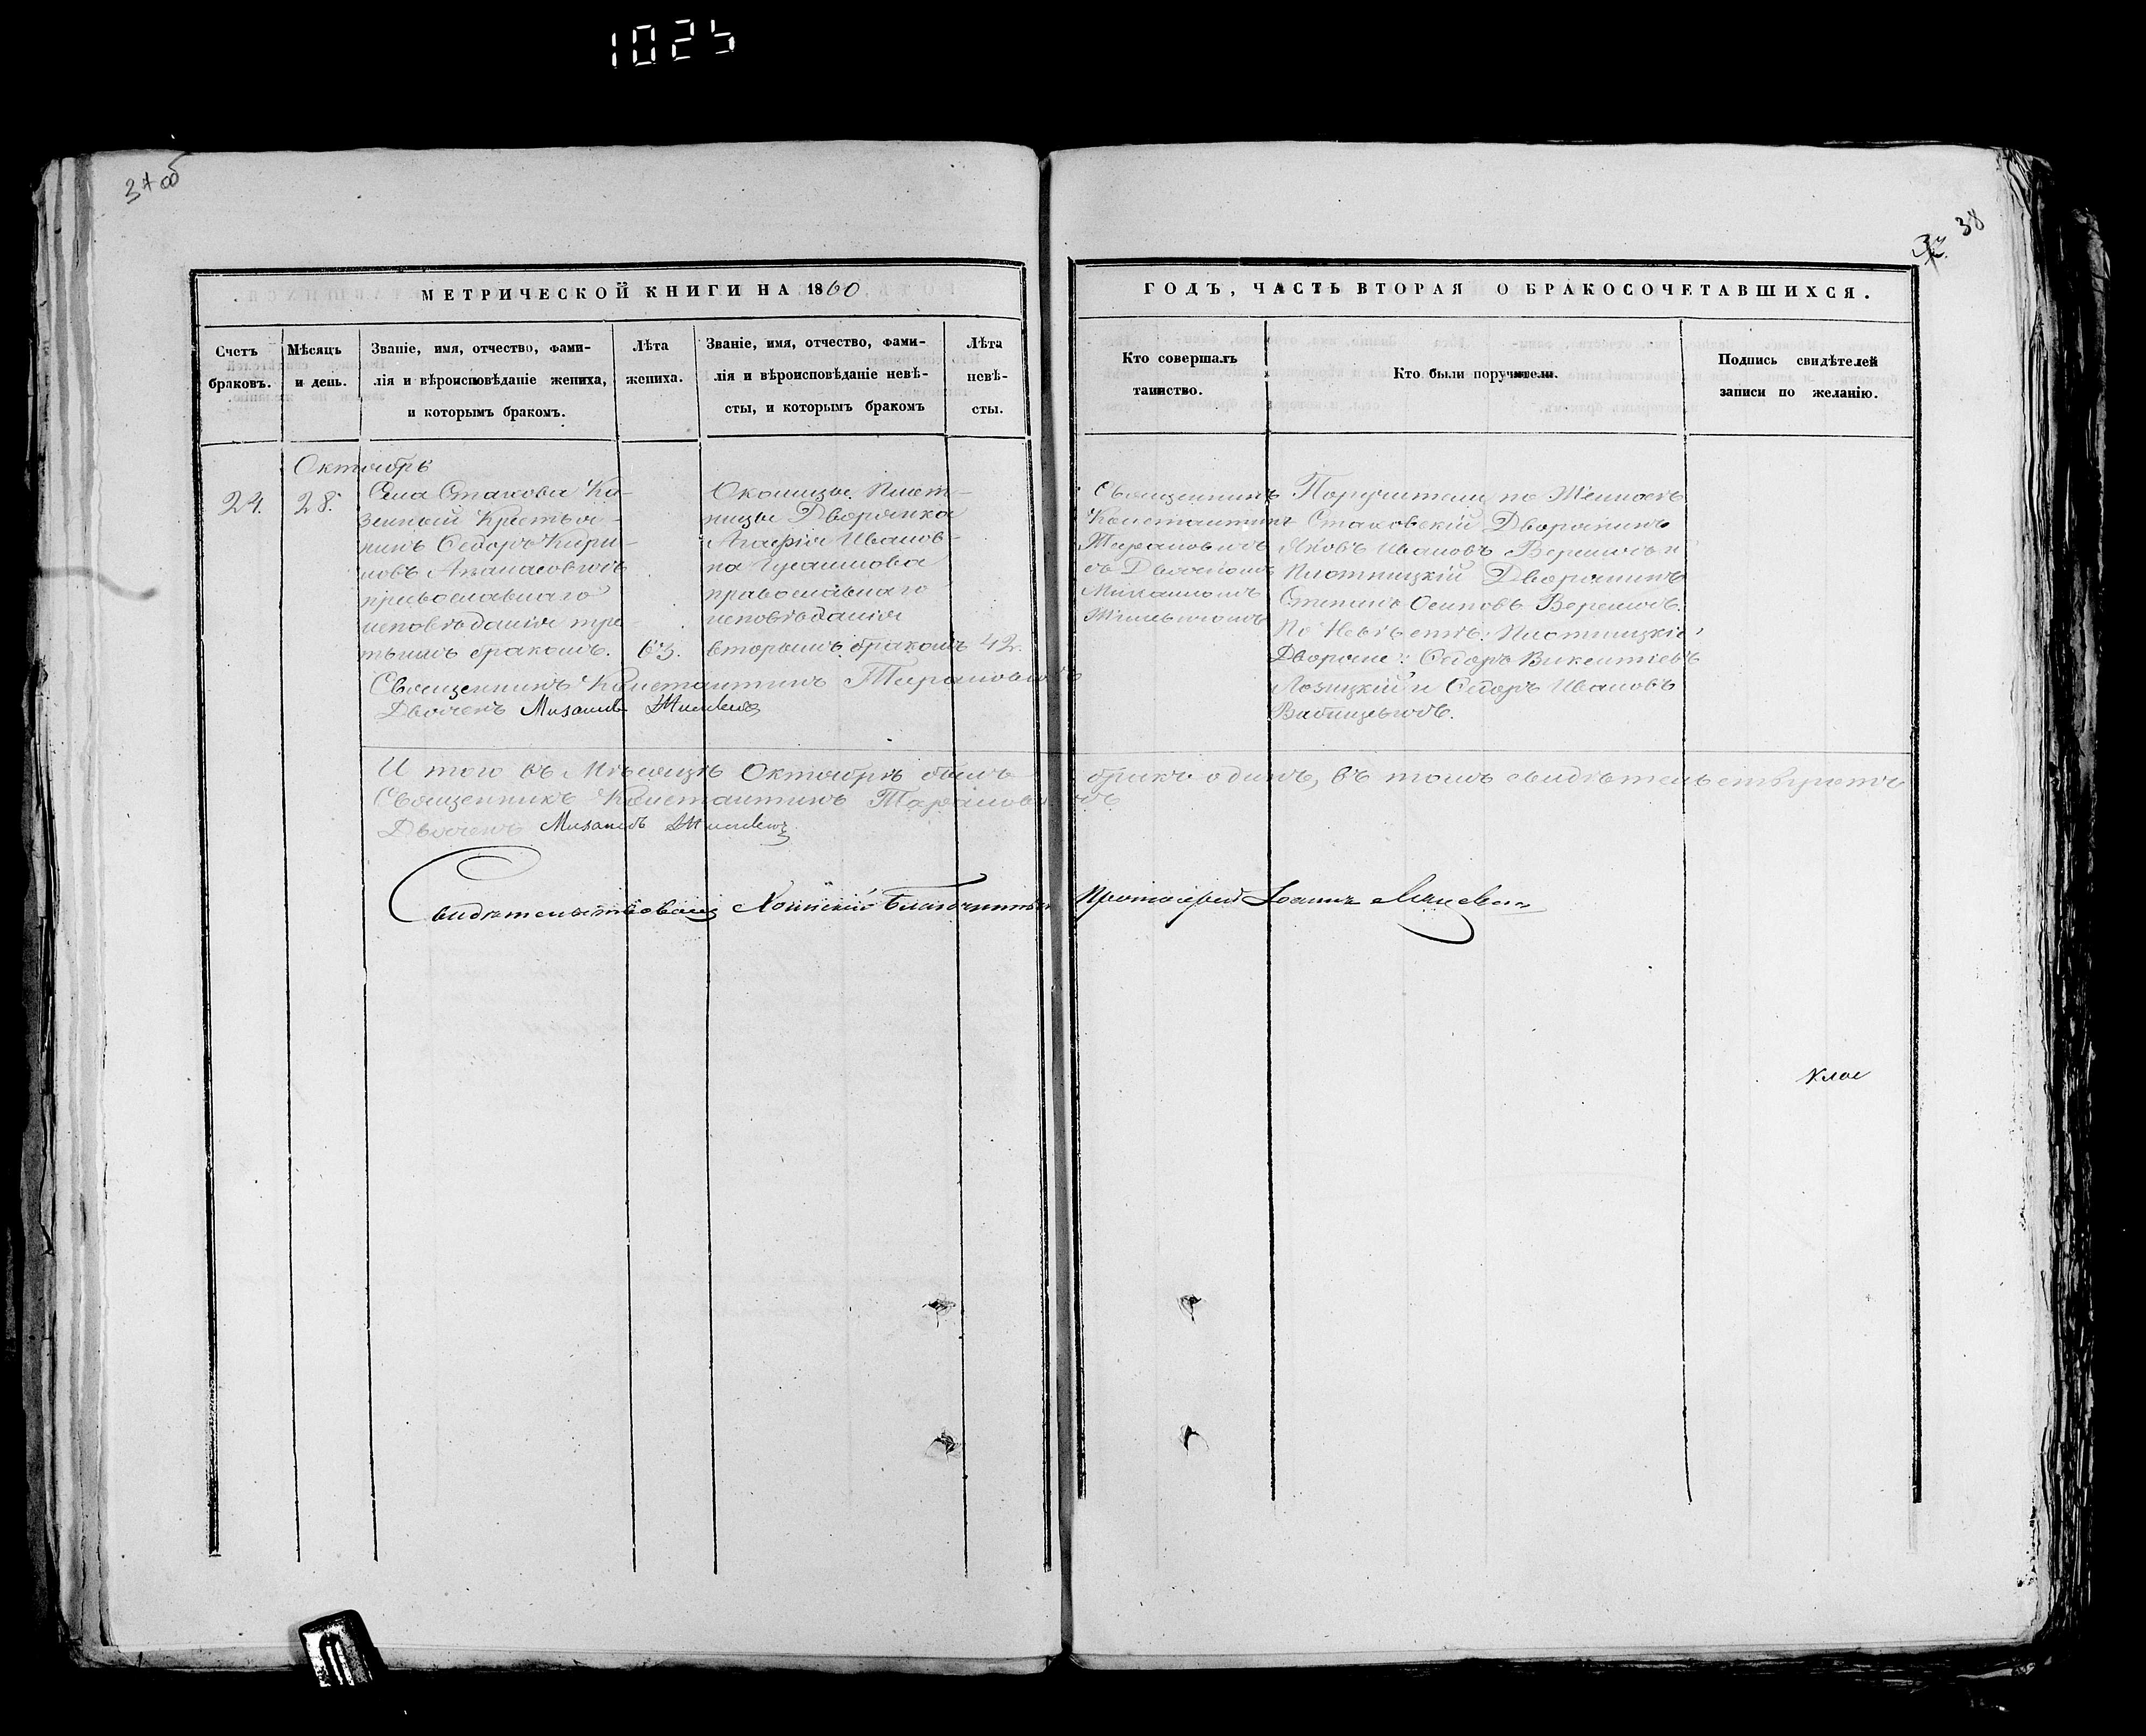 1025
37 об
38
32
МЕТРИЧЕСКОЙ КНИГИ НА 1860
ГОДЪ, ЧАСТЬ ВТОРАЯ О БРАКОСОЧЕТАВШИХСЯ.
Счетъ
браковъ.
Мѣсяцъ
и день.
Званіе, имя, отчество, фами-
лія и вѣроисповѣданіе жениха,
и которымъ бракомъ.
Лѣта
жениха.
Званіе, имя, отчество, фами-
лія и вѣроисповѣданіе невѣ-
сты, и которымъ бракомъ
Лѣта
невѣ-
сты.
Кто совершалъ
таинство.
Кто были поручители.
Подпись свидѣтелей
записи по желанію.
Октябрь
24.
28.
Села Стахова Ка-
зенный Крестья-
нинъ Ѳедоръ Кири-
ловъ Аѳанасовичъ
православнаго
исповѣданія тре-
тьимъ бракомъ.
63.
Околицы Плот-
ницы Дворянка
Агафія Иванов-
на
православнаго
исповѣданія
вторымъ бракомъ
42.
Священникъ
Константинъ
Тарановичъ
съ Дьячкомъ
Михаиломъ
Поручители по Женихѣ
Стаховскій Дворянинъ
Яковъ Ивановъ и
Плотницкій Дворянинъ
Степанъ Осиповъ
По Невѣстѣ: Плотницкіе
Дворяне: Ѳедоръ Викентіевъ
Лозицкій и Ѳедоръ Ивановъ
Священникъ Константинъ Тарановичъ
Дьячекъ Михаилъ
И того въ Мѣсяцѣ Октябрѣ былъ бракъ одинъ, въ томъ свидѣтельствуетъ
Священникъ Константинъ Тарановичъ
Дьячекъ Михаилъ
Свидѣтельствовалъ Благочинный Протоіерей Іоаннъ